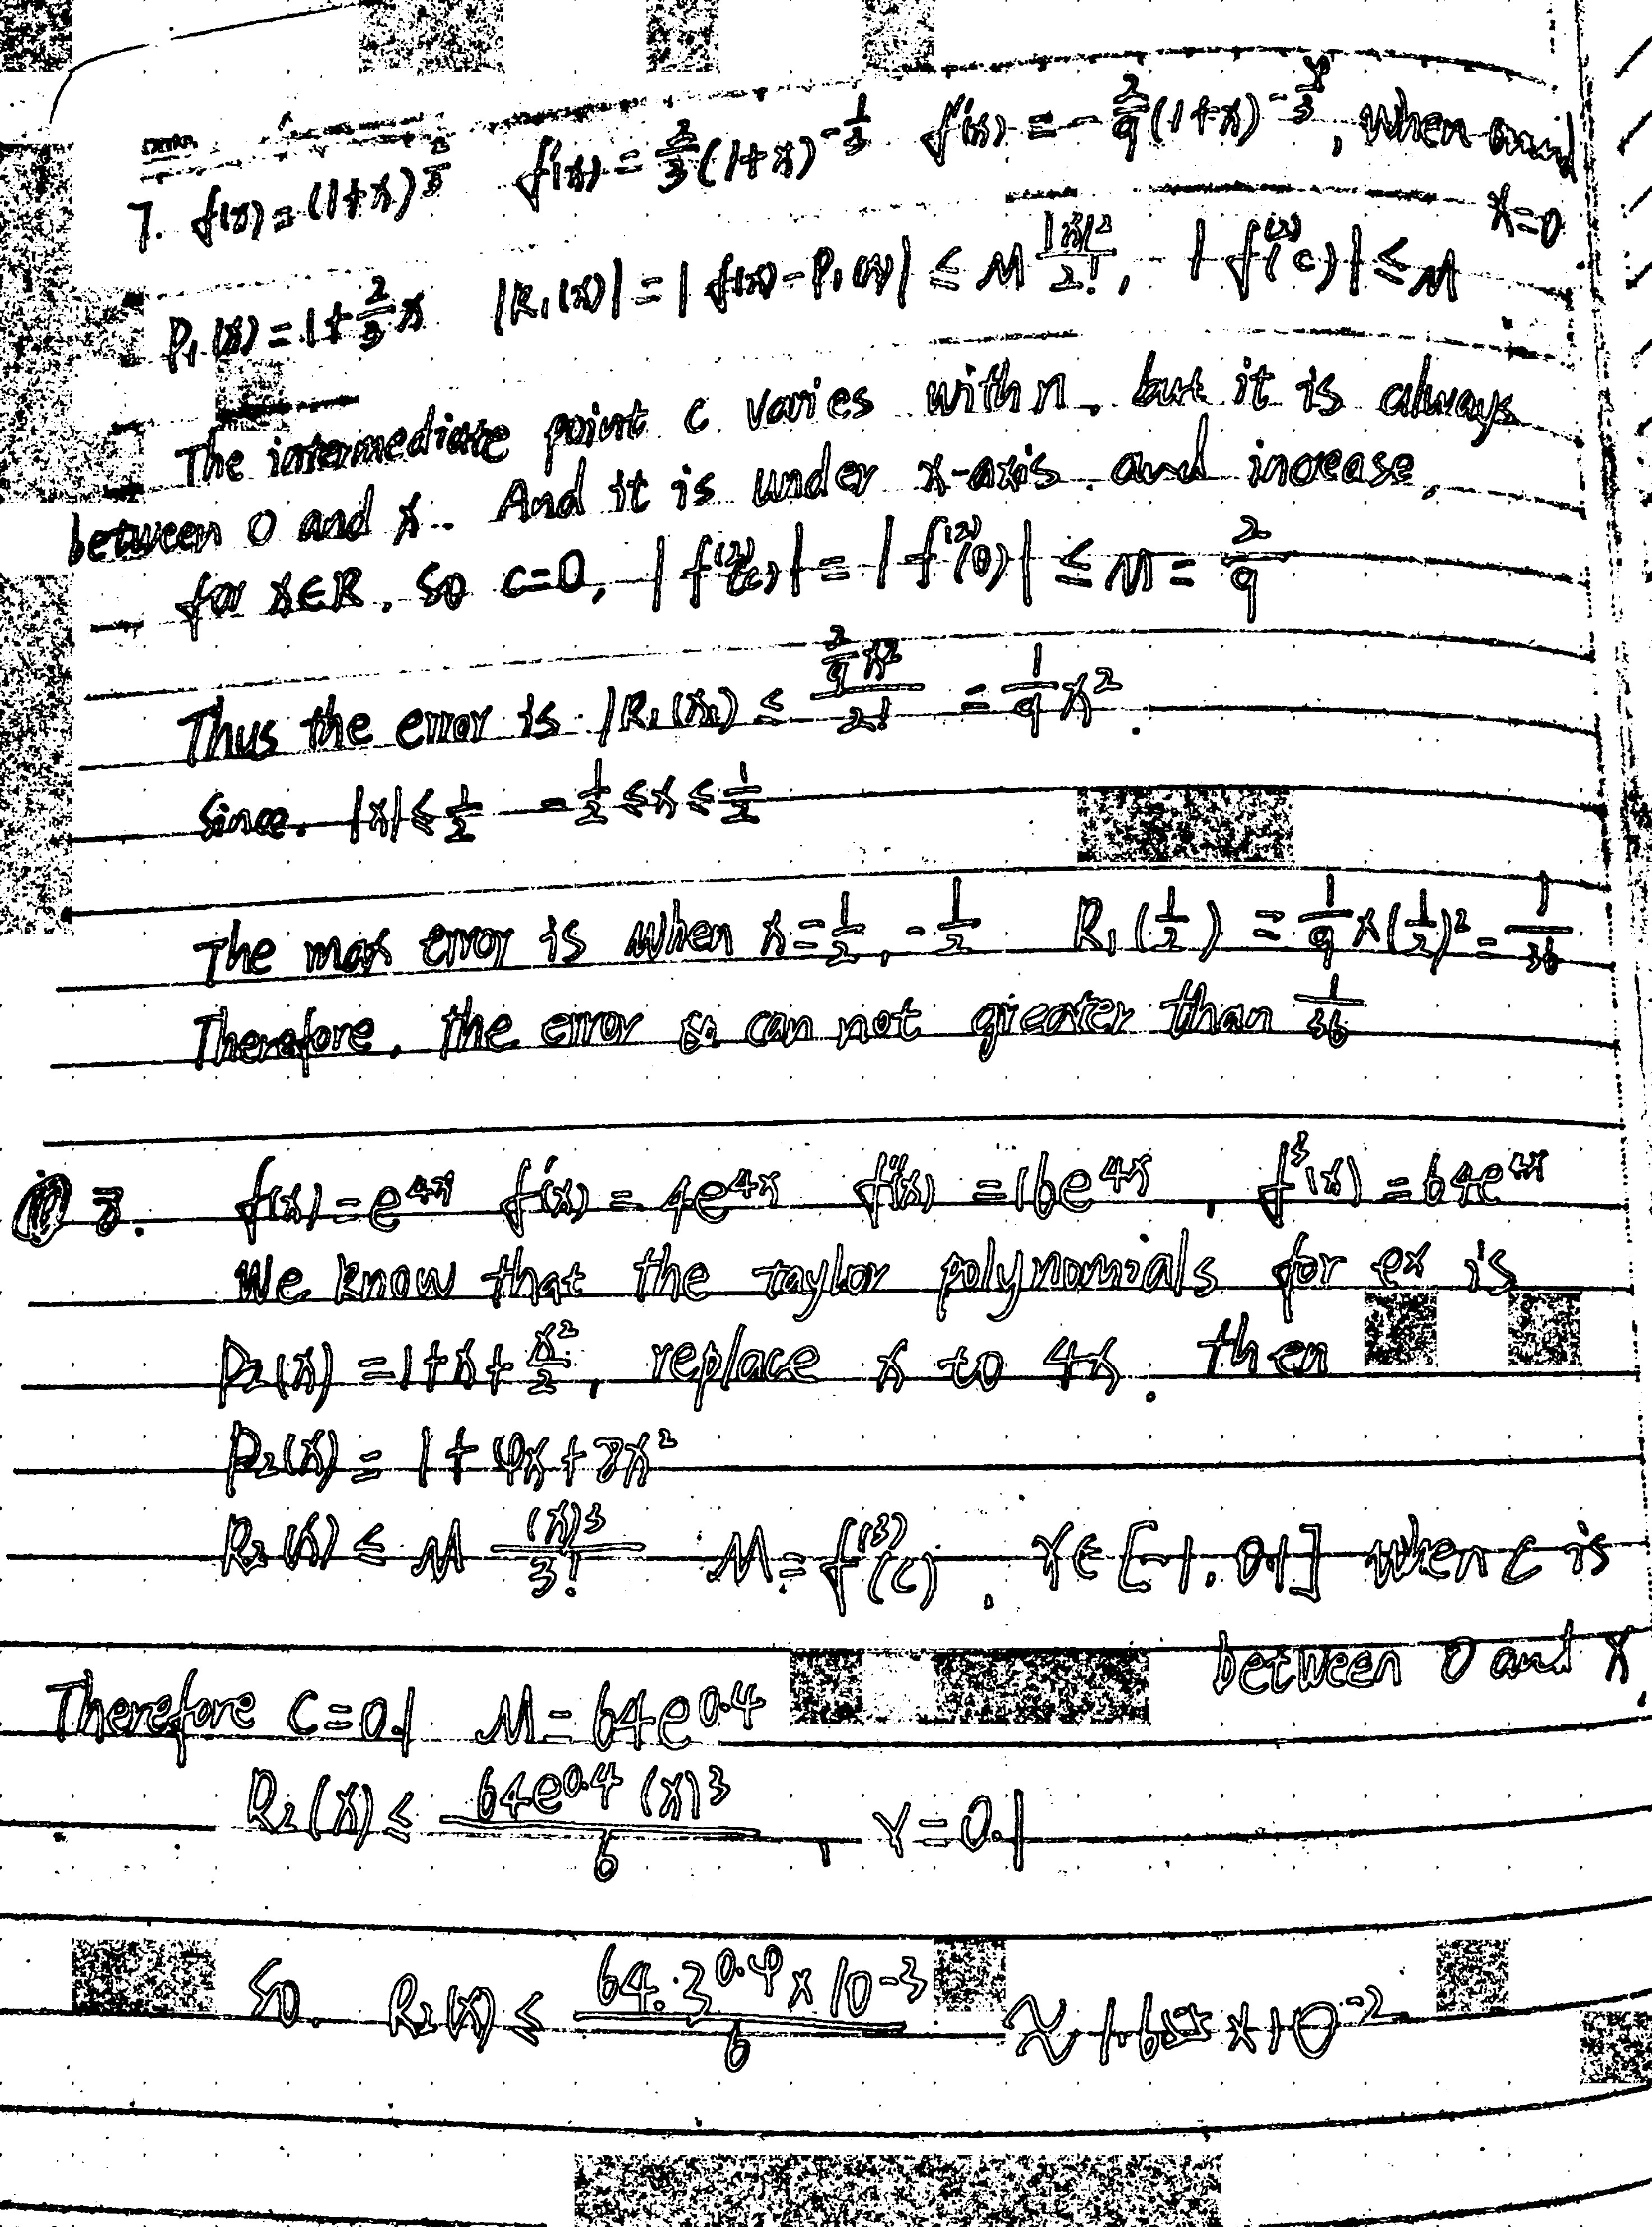 7. f(x) = (1+x)^{2/3} f'(x) = 2/3 (1+x)^{-1/3} f''(x) = -2/9 (1+x)^{-4/3}, when
x=0
P₁(x) = 1+2/3 x |R₁(x)| = |f(x)-P₁(x)| ≤ M |x|²/2!, |f^{(2)}(c)| ≤ M
The intermediate point c varies with n, but it is always
between 0 and x. And it is under x-axis and increase,
for x∈R. So c=0, |f^{(2)}(c)| = |f^{(2)}(0)| ≤ M = 2/9
Thus the error is |R₁(x)| ≤ (2/9 x²)/2! = 1/9 x².
Since. |x| ≤ 1/2 -1/2 ≤ x ≤ 1/2
The max error is when x = 1/2, -1/2 R₁(1/2) = 1/9 × (1/2)² = 1/36
Therefore, the error can not greater than 1/36
8. f(x) = e^{4x} f'(x) = 4e^{4x} f''(x) = 16e^{4x}, f³(x) = 64e^{4x}
We know that the taylor polynomials for ex is
P₂(x) = 1+x+x²/2, replace x to 4x. then
P₂(x) = 1+4x+8x²
R₂(x) ≤ M (x)³/3! M = f^{(3)}(c), x∈[-1, 0.1] when c is
between 0 and x.
Therefore c=0.1 M = 64e^{0.4}
R₂(x) ≤ 64e^{0.4}(x)³/6, x=0.1
So. R₂(x) ≤ 64·3^{0.4}×10^{-3}/6 ≈ 1.655×10^{-2}